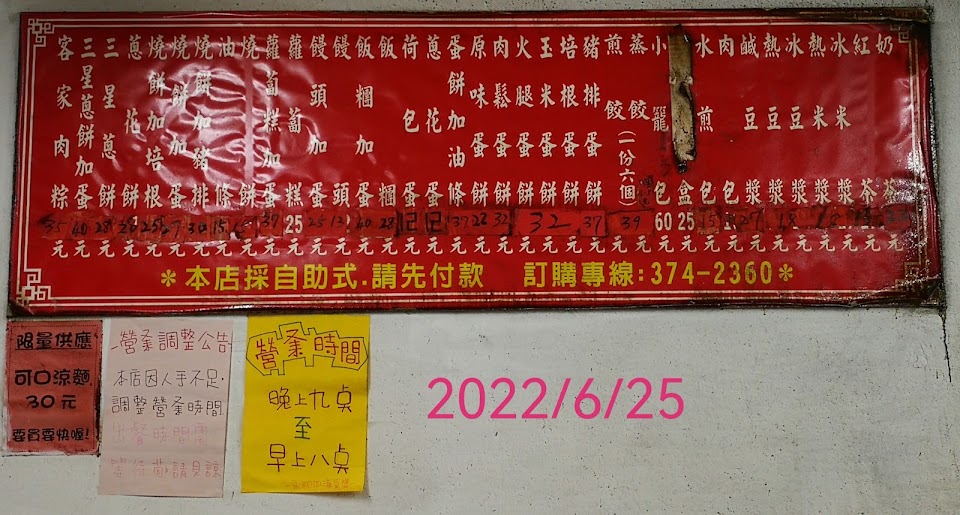 客家肉粽 元
三星蔥餅加蛋 40 元
三星蔥餅 28 元
蔥花餅 元
燒餅加培根 元
燒餅加蛋 元
燒餅加豬排 元
油條 15 元
燒餅 元
蘿蔔糕加蛋 37 元
蘿蔔糕 25 元
饅頭加蛋 25 元
饅頭 13 元
飯糰加蛋 40 元
飯糰 28 元
荷包蛋 12 元
蔥花蛋 元
蛋餅加油條 37 元
原味蛋餅 元
肉鬆蛋餅 32 元
火腿蛋餅
玉米蛋餅 32 元
培根蛋餅
豬排蛋餅 37 元
煎餃
蒸餃(一份六個) 39 元
小籠包 60 元
盒 25 元
水煎包 15 元
肉包 元
鹹豆漿 元
熱豆漿 元
冰豆漿 18 元
熱米漿 元
冰米漿 元
紅茶 元
奶茶 元
*本店採自助式.請先付款 訂購專線:374-2360*
限量供應
可口涼麵
30元
要買要快喔!
營業調整公告
本店因人手不足.
調整營業時間
出餐時間需
等待敬請見諒
營業時間
晚上九点
至
早上八点
2022/6/25